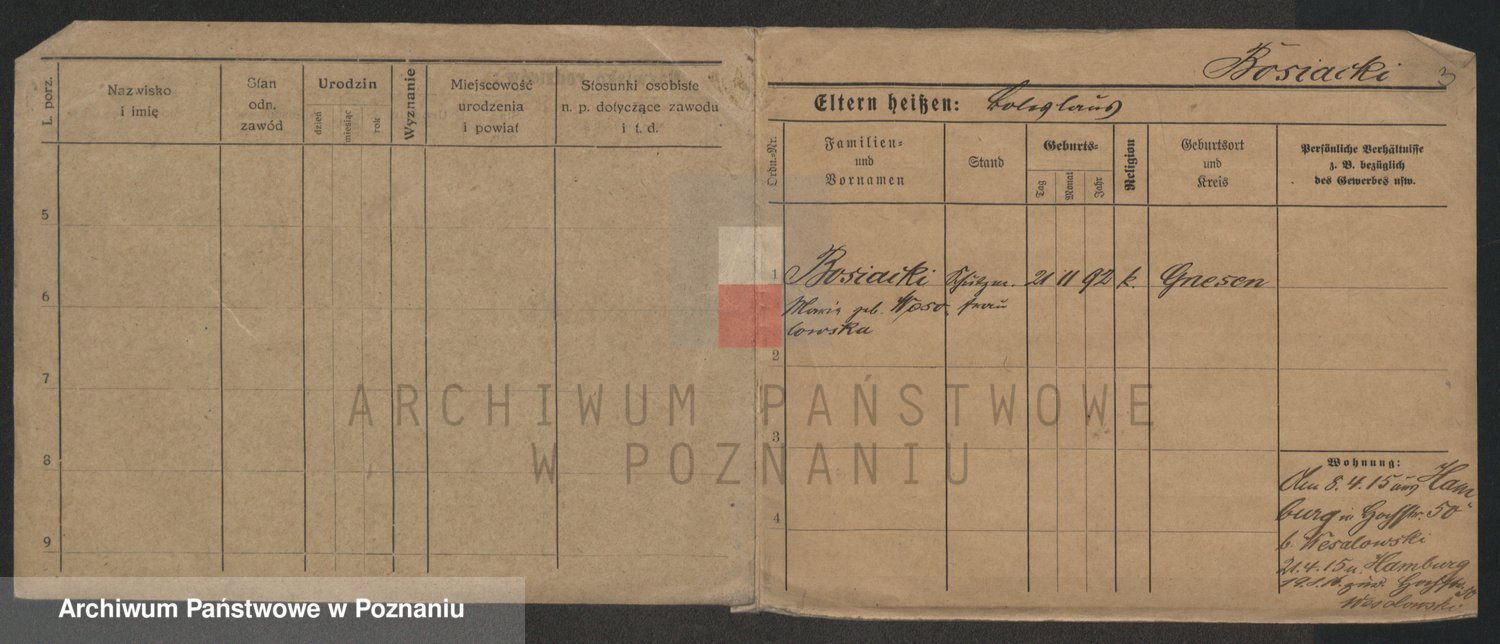 L. porz.
Nazwisko
i imię
Stan
odn.
zawód
Urodzin
dzień
miesiąc
rok
Wyznanie
Miejscowość
urodzenia
i powiat
Stosunki osobiste
n. p. dotyczące zawodu
i t. d.
5
6
7
8
9
Bosiacki
3
Eltern heißen: Boleslaus
Ordn.-Nr.
Familien-
und
Vornamen
Stand
Geburts-
Tag
Monat
Jahr
Religion
Geburtsort
und
Kreis
Persönliche Verhältnisse
z. B. bezüglich
des Gewerbes usw.
1
Bosiacki Schutzm. 21 11 92 k. Gnesen
Maria geb. Weso Frau
lowska
2
3
4
Wohnung:
Am 8.4.15 aus Ham
burg n Hochstr. 50
b. Wesalowski
21.4.15 n. Hamburg
Hochstr. 50
Wesolowski
ARCHIWUM PAŃSTWOWE
W POZNANIU
Archiwum Państwowe w Poznaniu